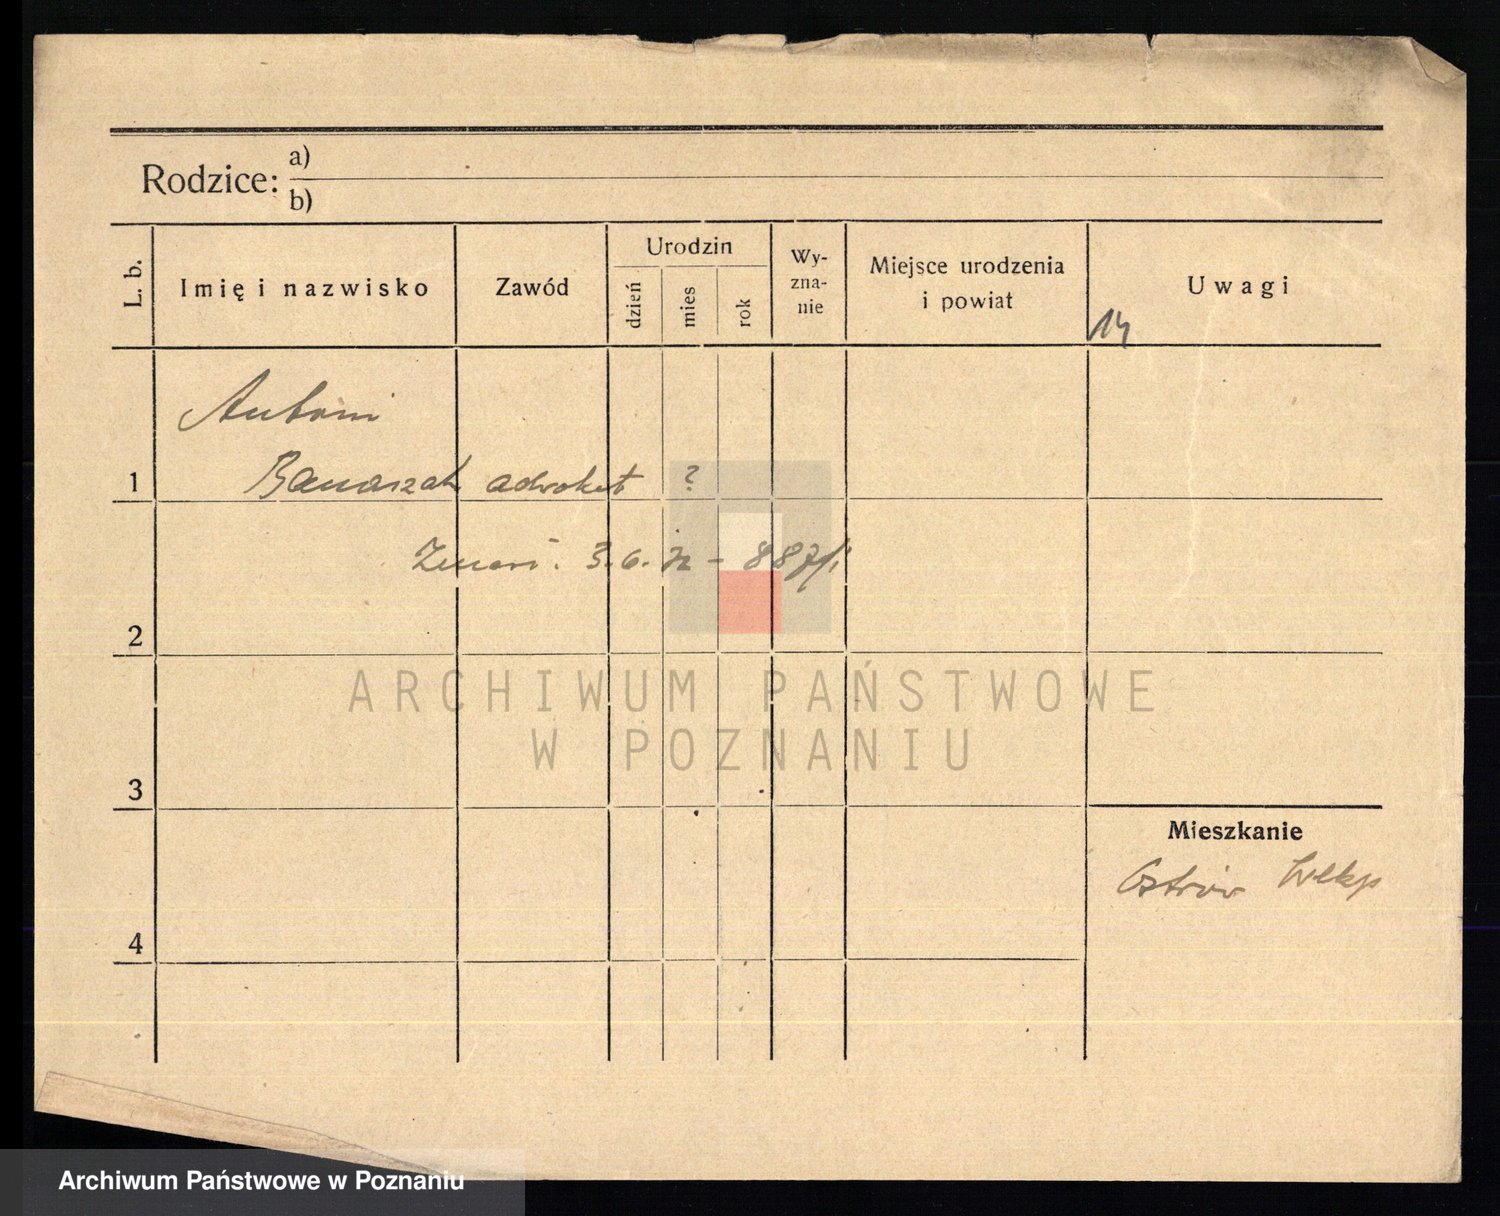 Rodzice: a)
b)
L. b.
Imię i nazwisko
Zawód
Urodzin
dzień
mies
rok
Wy-
zna-
nie
Miejsce urodzenia
i powiat
Uwagi
14
Antoni
1 Banaszak adwokat ?
Zmarł. 3.6.72 - 887/
2
3
4
Mieszkanie
Ostrów Wlkp
ARCHIWUM PAŃSTWOWE
W POZNANIU
Archiwum Państwowe w Poznaniu